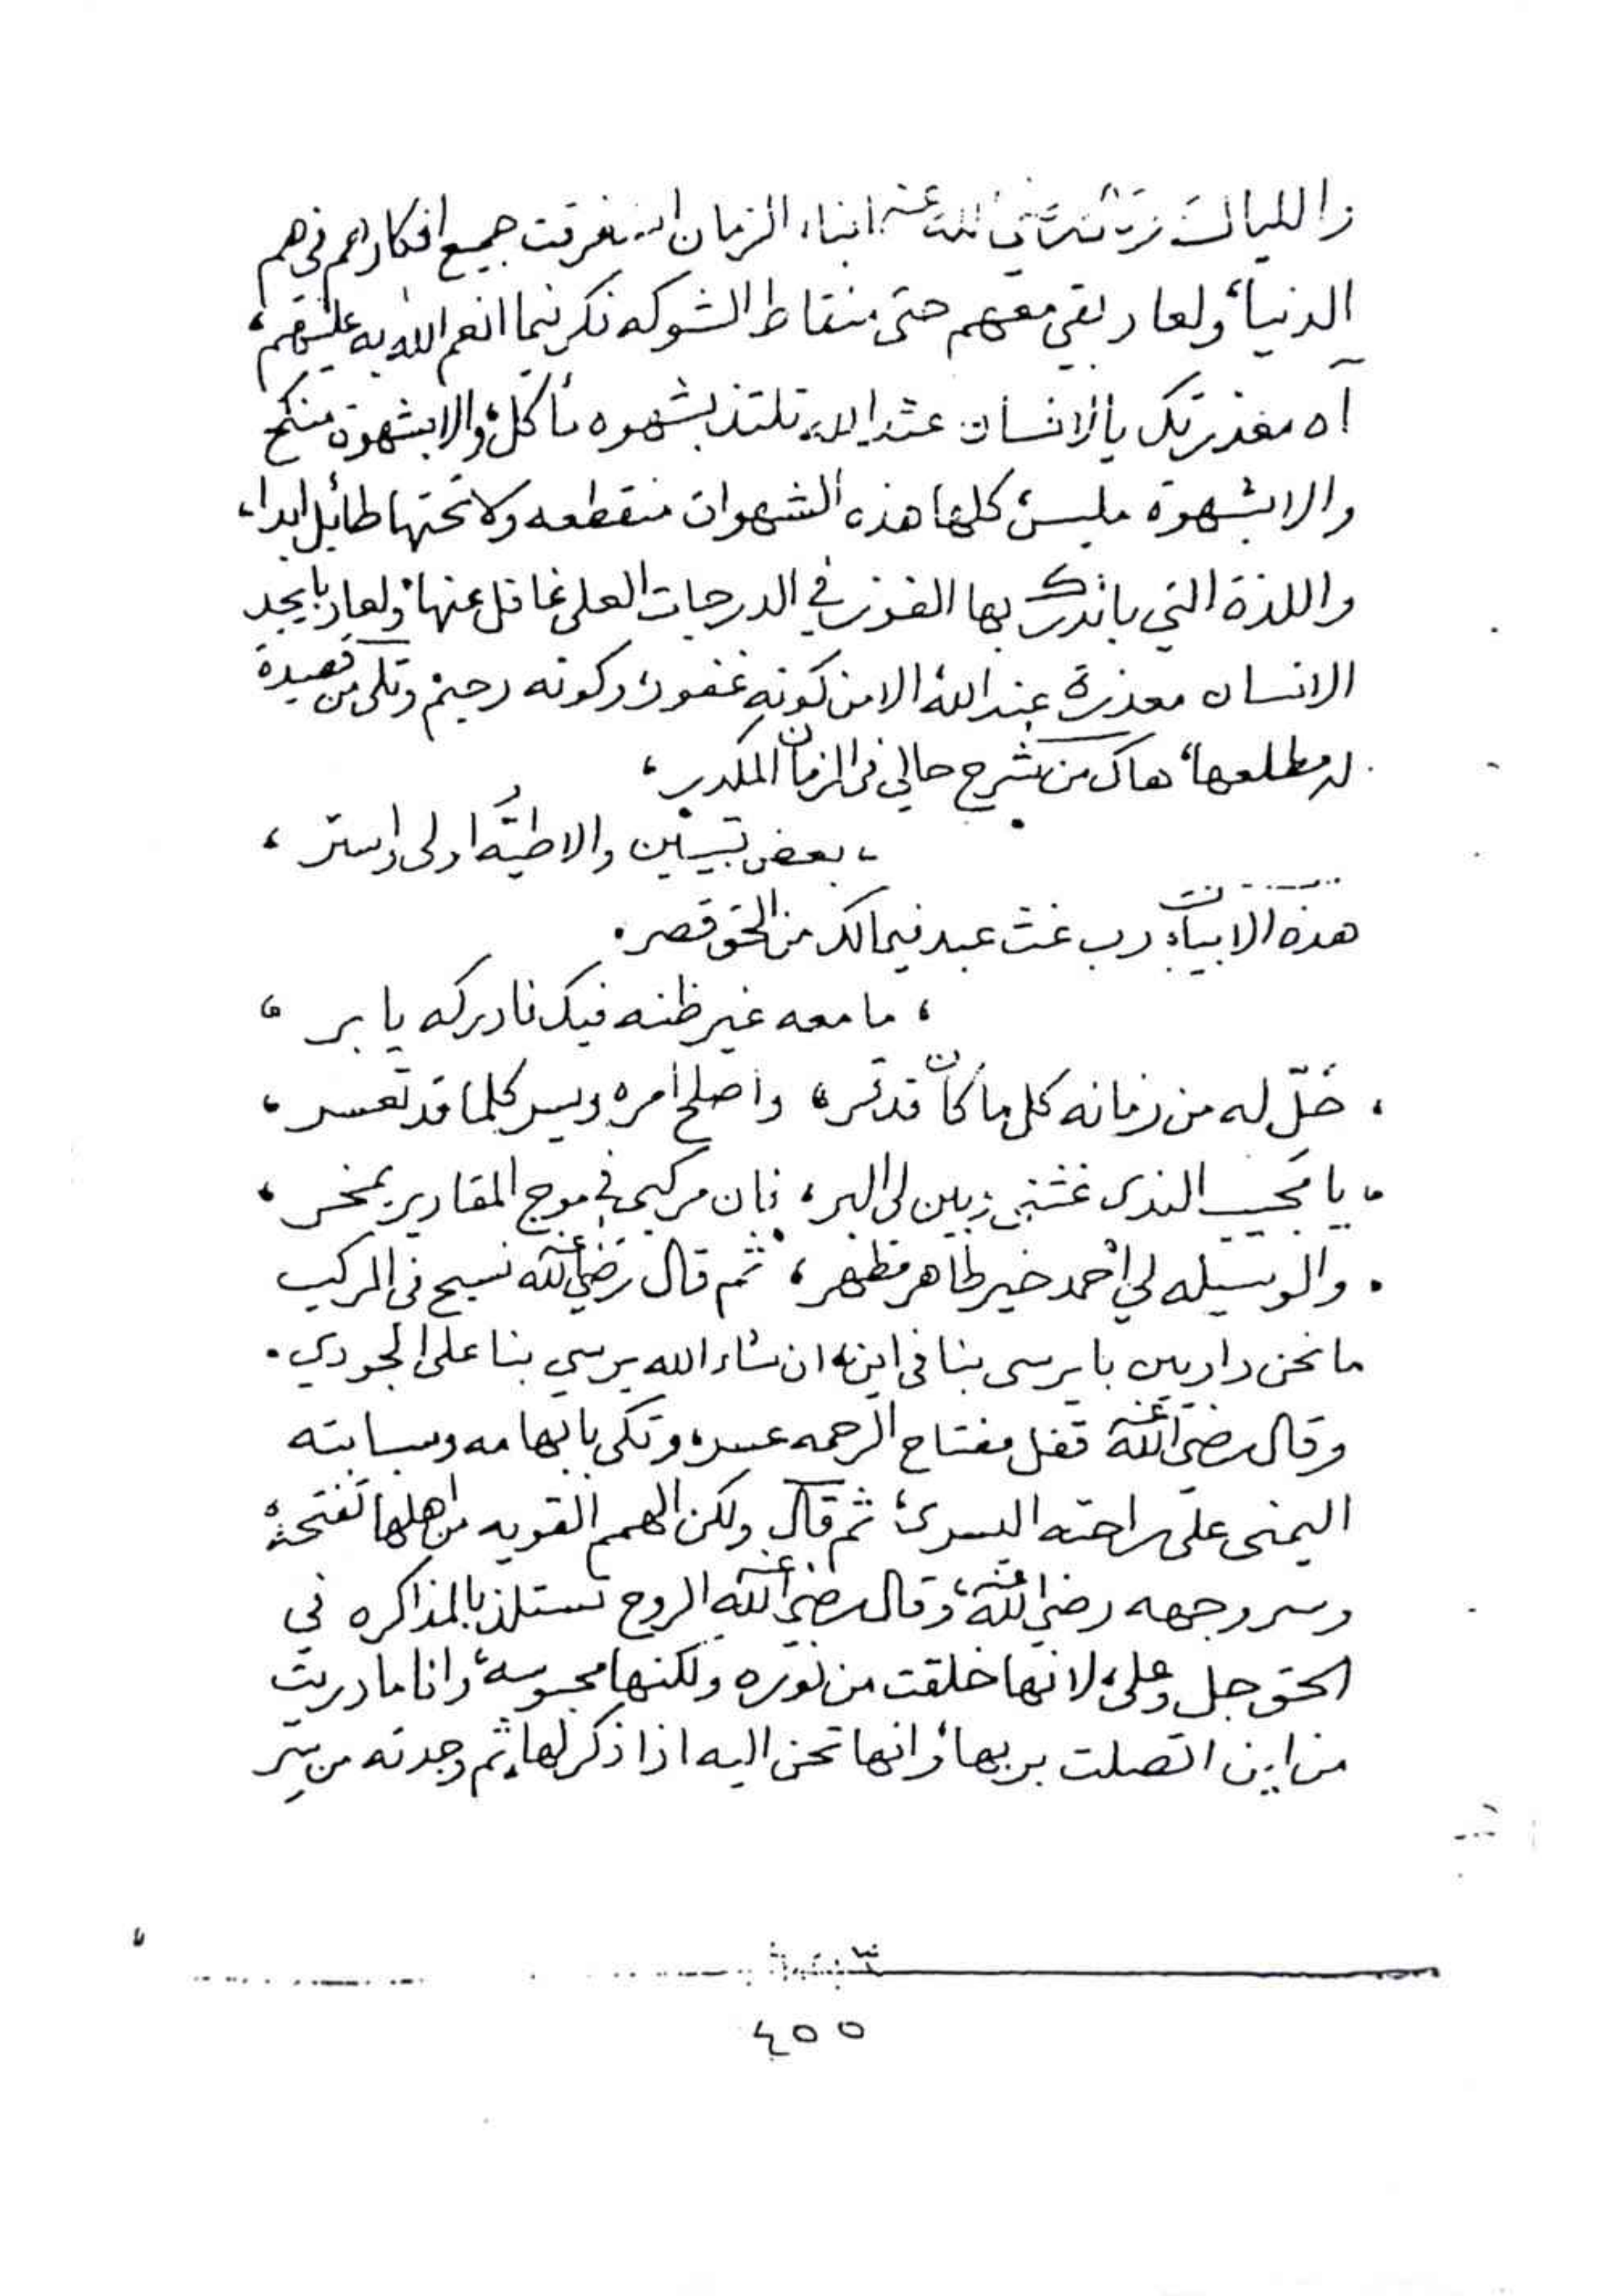 رضي الله عنه ابناء الزمان استغرقت جميع افكارهم في هم
الدنيا، ولعاد بقي معهم حتى منقاط الشوكه فكر فيما انعم الله به عليهم،
آه معذرتك يا الانسان عند الله تلتذ بشهوه مأكل، والا بشهوة منكح
والا بشهوة ملبس، كلها هذه الشهوات منقطعه ولا تحتها طائل ابدا،
واللذة التي باتدرك بها الفوز في الدرجات العلى غافل عنها، ولعاد بايجد
الانسان معذرة عند الله الا من كونه غفور، وكونه رحيم، وتلى من قصيدة
له مطلعها، هاك من شرح حالي في الزمان المكدر،
، بعض تبيين والا طيّه اولى واستر،
هذه الابيات، رب غث عبد فيما لك من الحق قصر.
، ما معه غير ظنه فيك فادركه يا بر،
، خلّ له من زمانه كل ما كان قد مر، واصلح امره ويسر كلما قد تعسر،
، يا مجيب الندى غثني وبين لي البر، فان مركبي في موج المقادير يمخر،
. والوسيله لي أحمد خير طاهر مطهر، ثم قال رضي الله عنه نسبح في المركب
ما نحن داريين با يرسي بنا في اين، ان شاء الله يرسي بنا على الجودي.
وقال رضي الله عنه قفل مفتاح الرحمه عسر، وتكى بابهامه وسبابته
اليمنى على راحته اليسرى، ثم قال ولكن الهمم القويه من اهلها تفتحه،
وسر وجهه رضي الله عنه، وقال رضي الله عنه الروح تستلذ بالمذاكره في
الحق جل وعلى، لانها خلقت من نوره ولكنها محبوسه، وانا ما دريت
من اين اتصلت بربها، وانها تحن اليه اذا ذكر لها، ثم وجدته من سر
٤٥٥